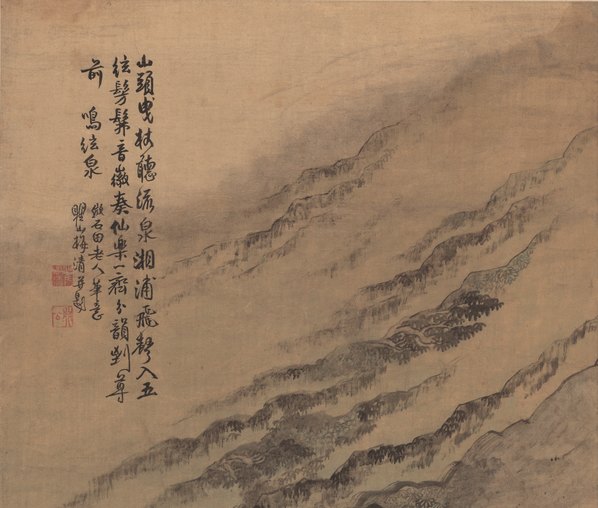 山頭曳杖聽流泉湘浦飛聲入五
絃髣髴音徽奏仙樂一齊分韻到尊
前 鳴絃泉
倣石田老人筆意
瞿山梅清并題